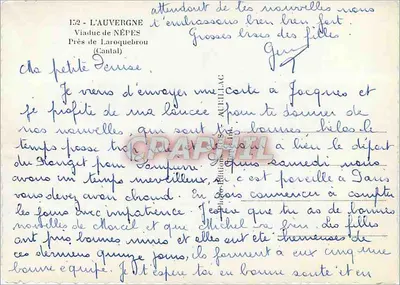 152 - L'AUVERGNE
Viaduc de NÈPES
Près de Laroquebrou
(Cantal)
attendant de tes nouvelles nous
t'embrassons bien bien fort.
Grosses bises des filles
Ma petite Denise.
Je viens d'envoyer une carte à Jacques et
je profite de ma lancée pour te donner de
nos nouvelles, qui sont très bonnes, hélas le
temps passe trop a lieu le départ
du pour depuis samedi nous
avons un temps merveilleux, si c'est pareille à Paris
vous devez avoir chaud. En commencer à compter
les jours avec impatience. J'espère que tu as de bonnes
nouvelles de Marcel et que Michel va bien. Les filles
ont pris bonnes mines et elles ont été heureuses de
ces derniers quinze jours, ils forment à eux cinq une
bonne équipe. Je t'espère toi en bonne santé et en
CPAPHIL
AURILLAC